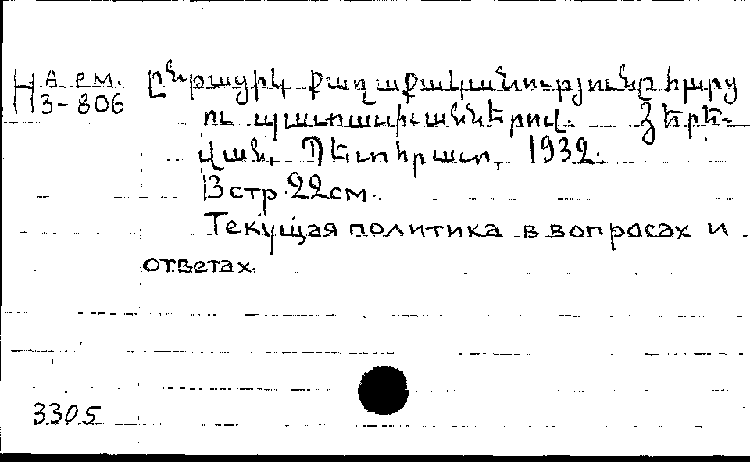 H Арм.
3-806
Ընթացիկ քաղաքականությունը հարց
ու պատասխաններով. Յերե-
վան, Պետհրատ, 1932.
13 стр. 22 см.
Текущая политика в вопросах и
ответах.
3305